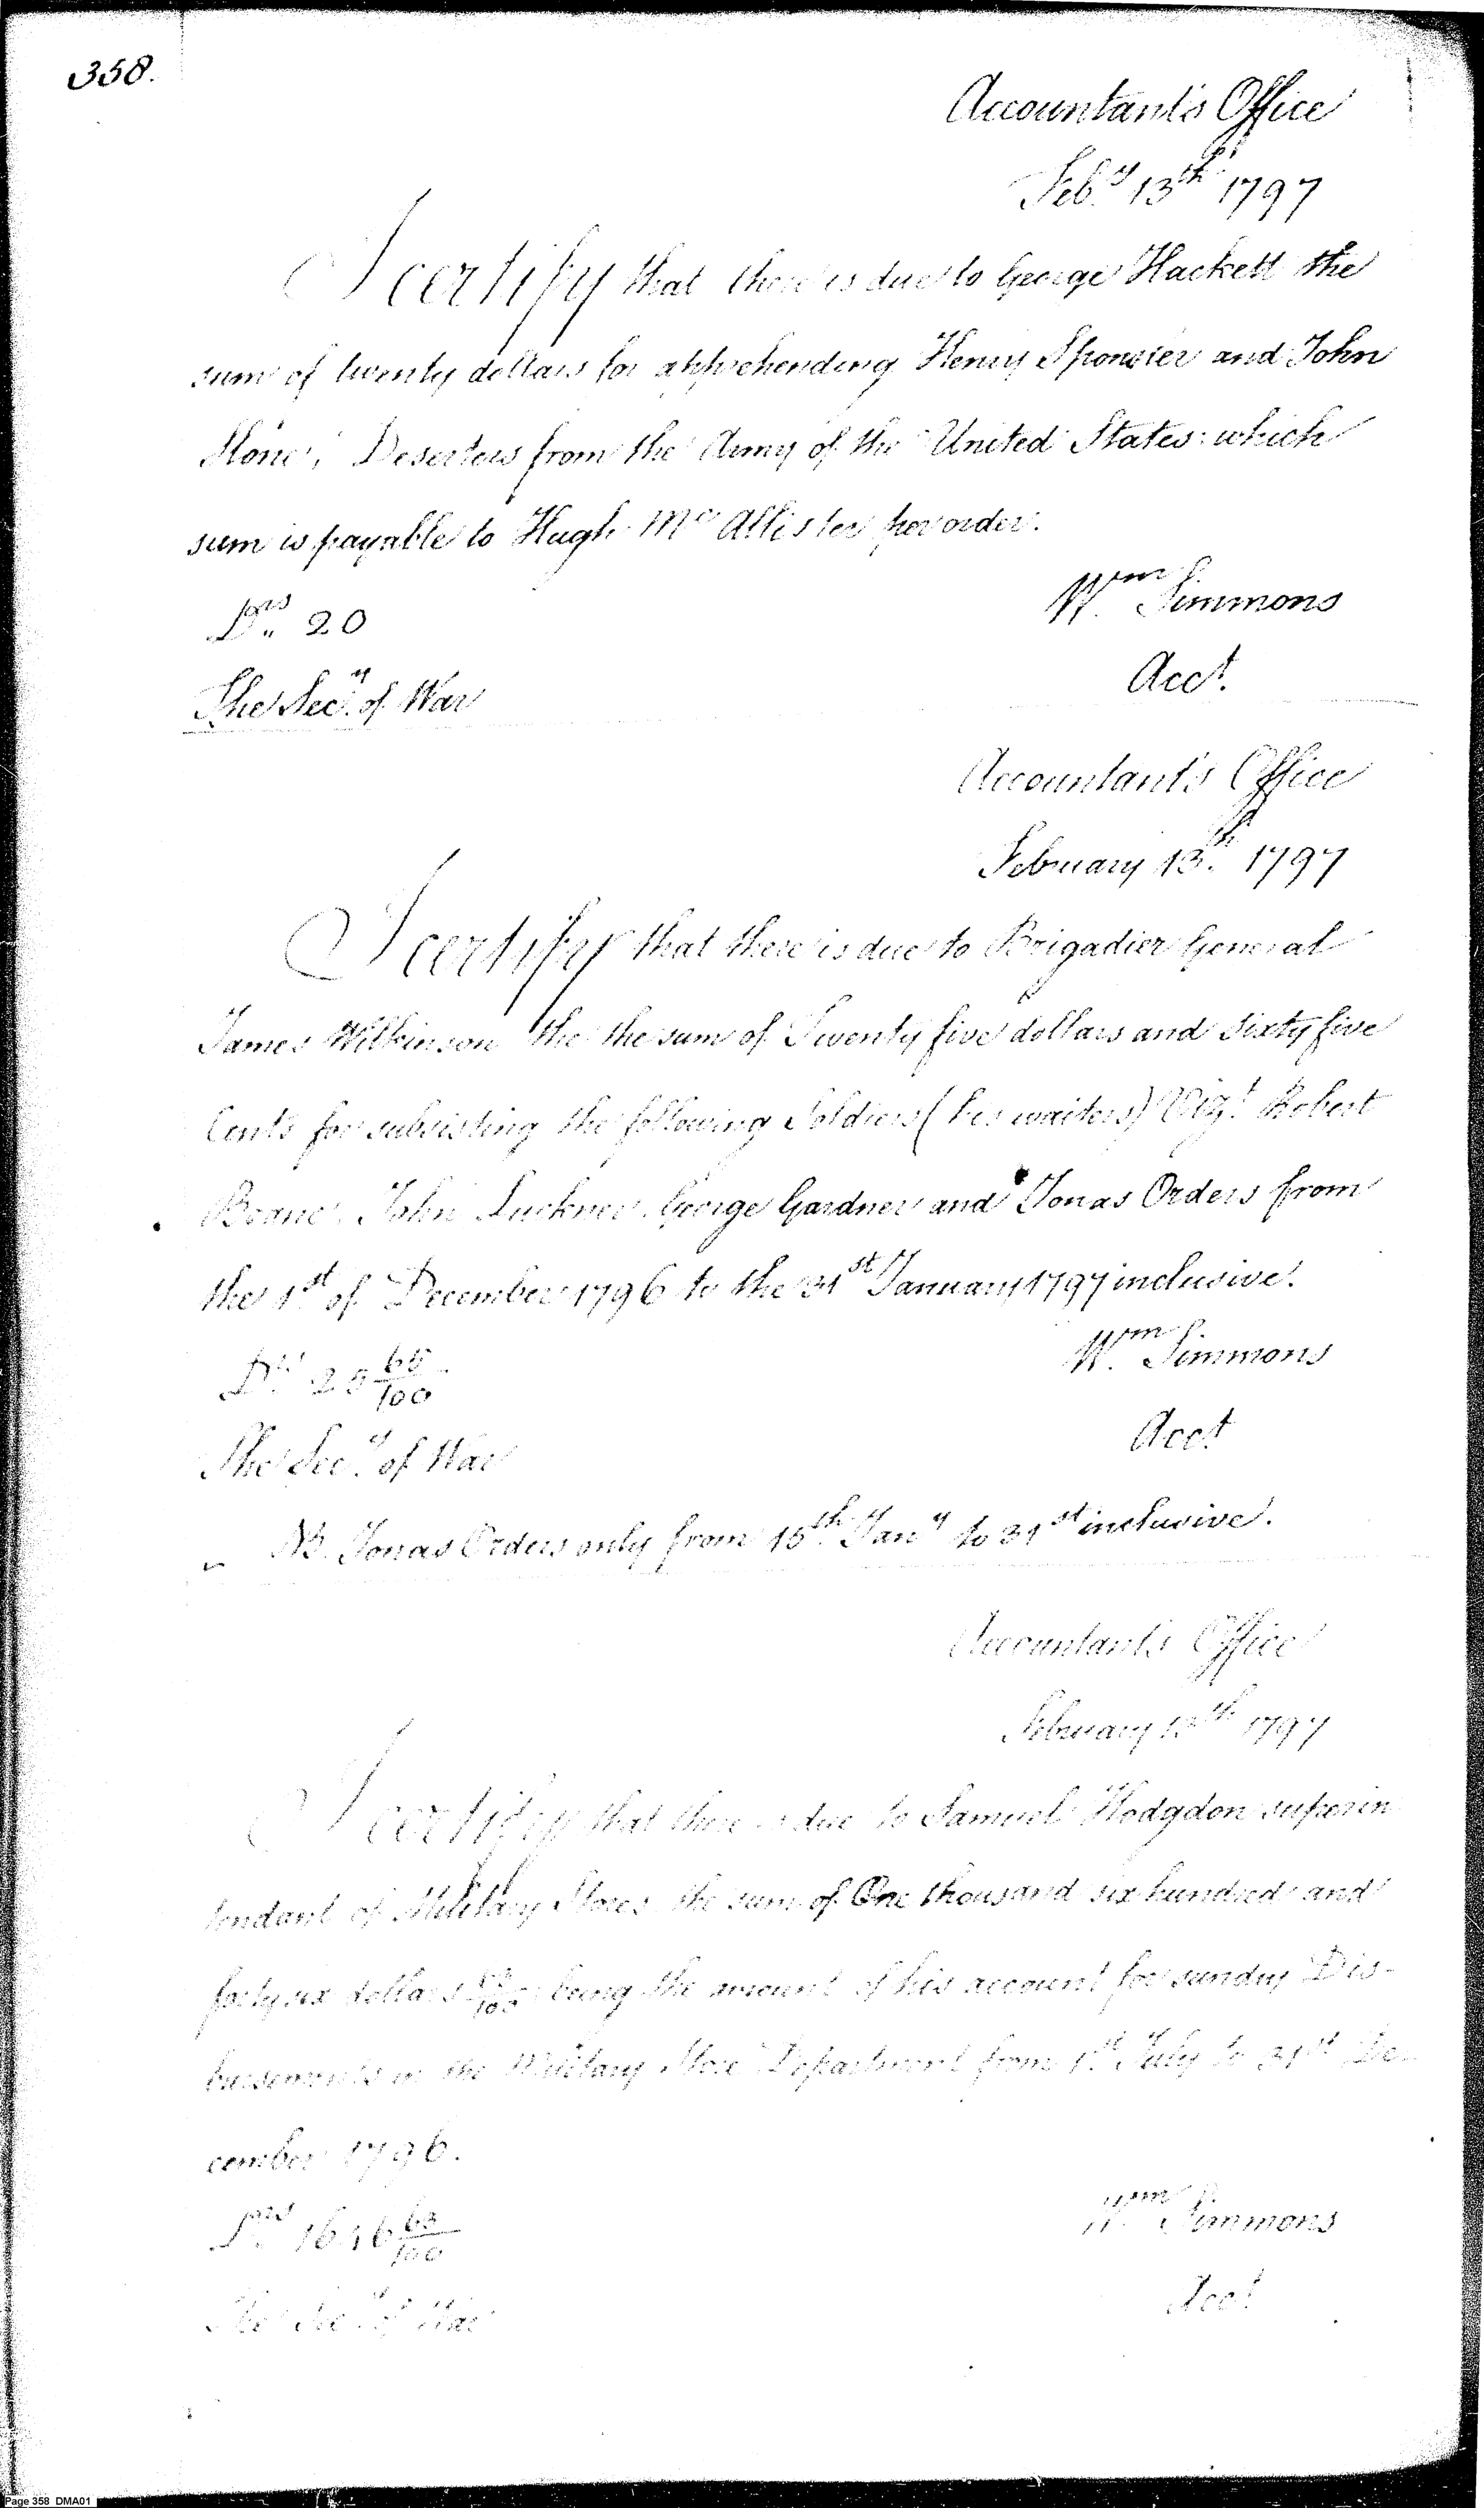 358.
Accountant's Office
Feby 13th 1797
I certify that there is due to George Hackett the
sum of twenty dollars for apprehending Henry Sponsler and John
Stone, Deserters from the Army of the United States: which
sum is payable to Hugh McAllister per order.
Drs 20
Wm Simmons
Acct.
The Secy of War
Accountant's Office
February 13th 1797
I certify that there is due to Brigadier General
James Wilkinson the the sum of Twenty five dollars and sixty five
Cents for subsisting the following Soldiers (his waiters) Vizt. Robert
John Luckner. George Gardner and Jonas Orders from
the 1st of December 1796 to the 31st January 1797 inclusive.
Drs 25 65/100
Wm Simmons
Acct
The Secy of War
NB. Jonas Orders only from 15th Jany to 31st inclusive.
Accountant's Office
February 13th 1797
I certify that there is due to Samuel Hodgdon superin
tendant of Military Stores the sum of One thousand six hundred and
forty six dollars 63/100 being the amount of his account for sundry Dis-
bursements in the Military Store Department from 1st July to 31st De-
cember 1796.
Drs 1646 63/100
Wm Simmons
Acct
The Secy of War
Page 358 DMA01